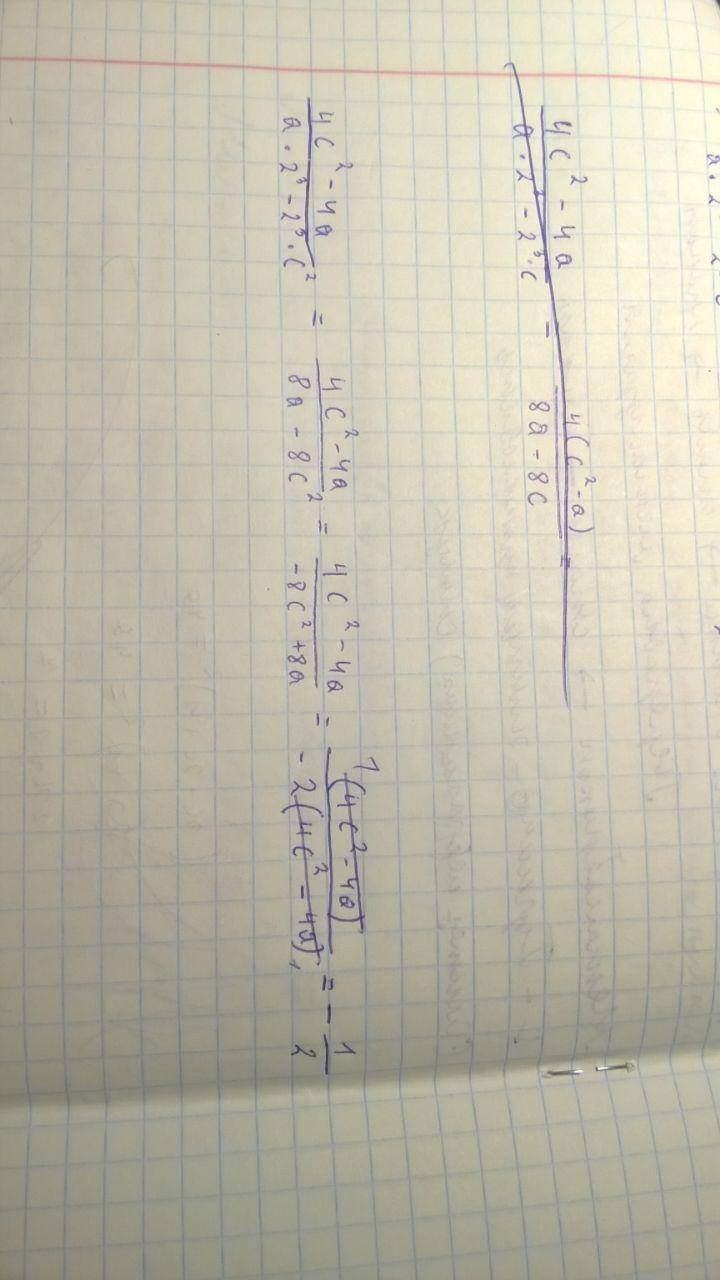 4c² - 4a / a · 2³ - 2³ · c = 4(c² - a) / 8a - 8c =
4c² - 4a / a · 2³ - 2³ · c² = 4c² - 4a / 8a - 8c² = 4c² - 4a / -8c² + 8a = 1(4c² - 4a) / -2(4c² - 4a)₁ = - 1 / 2